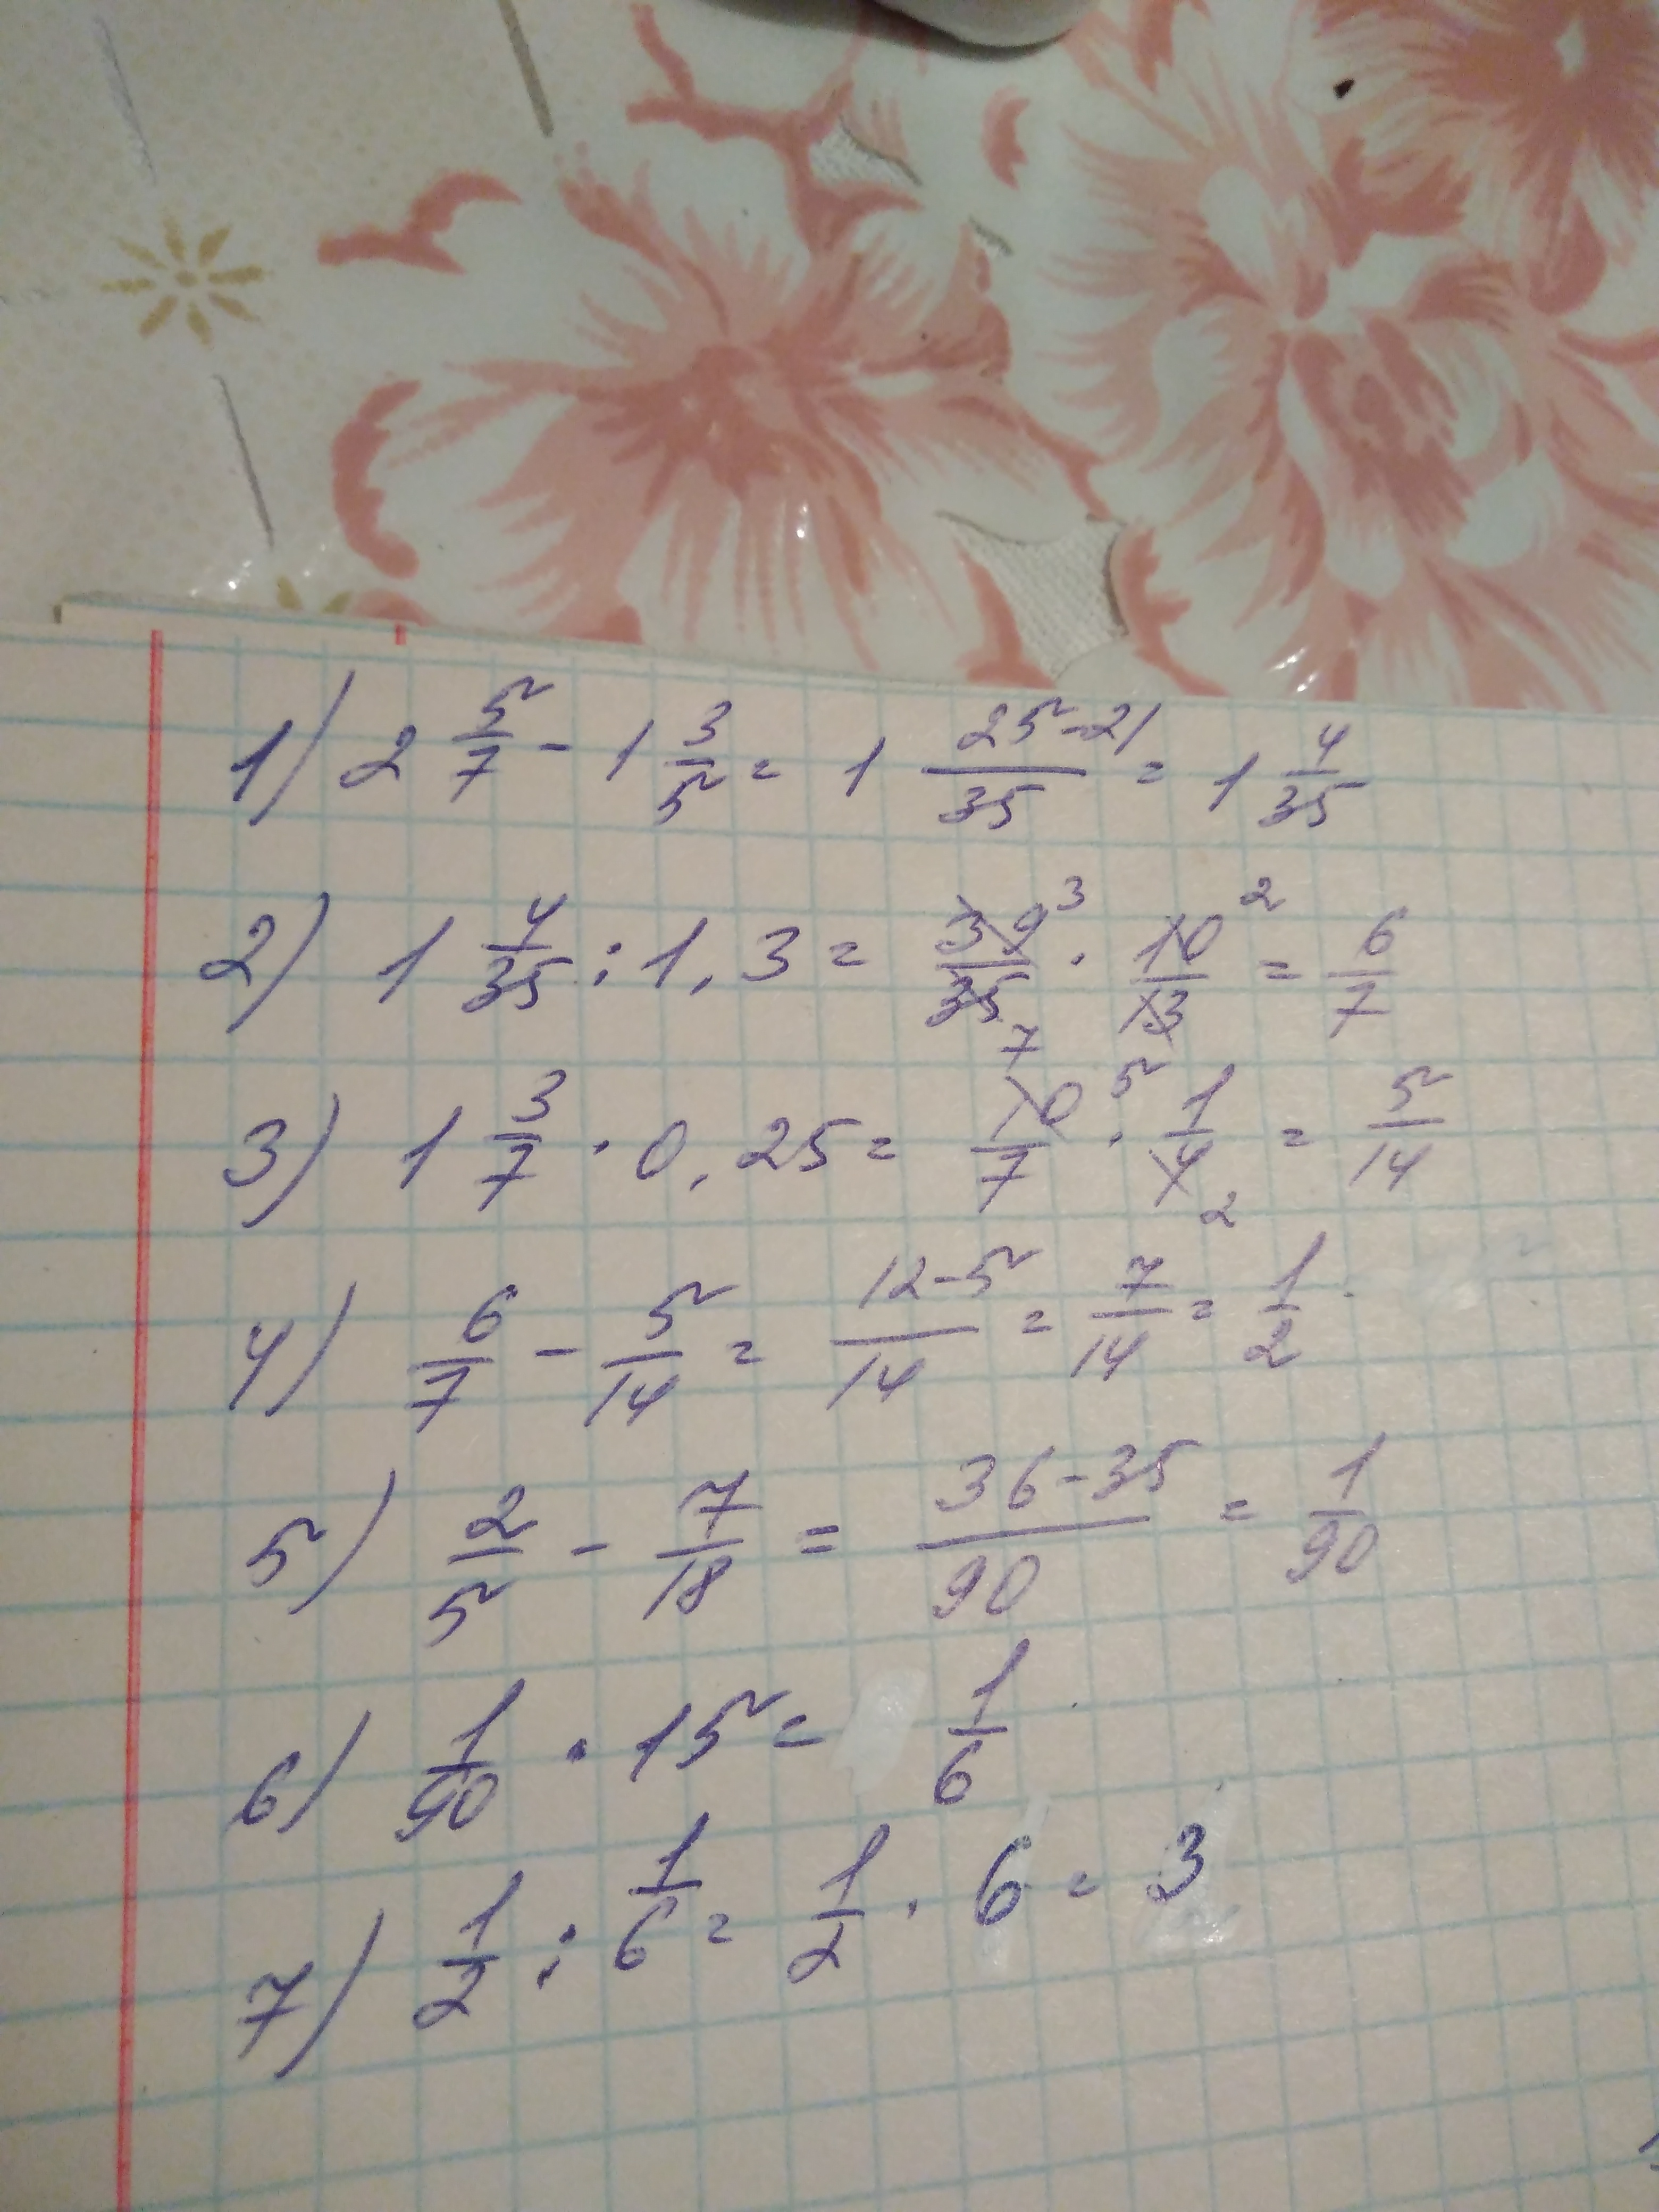 1) 2 5/7 - 1 3/5 = 1 (25-21)/35 = 1 4/35
2) 1 4/35 : 1,3 = 39/35 3 7 · 10/13 2 = 6/7
3) 1 3/7 · 0,25 = 10/7 5 · 1/4 2 = 5/14
4) 6/7 - 5/14 = (12-5)/14 = 7/14 = 1/2
5) 2/5 - 7/18 = (36-35)/90 = 1/90
6) 1/90 · 15 = 1/6
7) 1/2 : 1/6 = 1/2 · 6 = 3